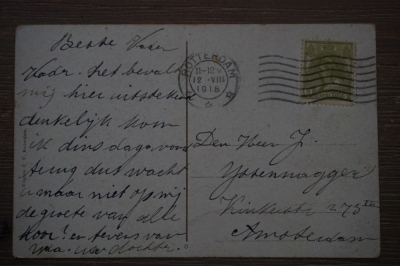 Beste Vader
Voor. het bevalt
mij hier uitstekend
denkelijk kom
ik dins dags voor
terug dus wacht
maar niet op mij
de groete van alle
hoor! en tevens van
uw dochter.
ROTTERDAM
12 VIII
1918
Den Heer J.
Kinkerstr 275
Amsterdam